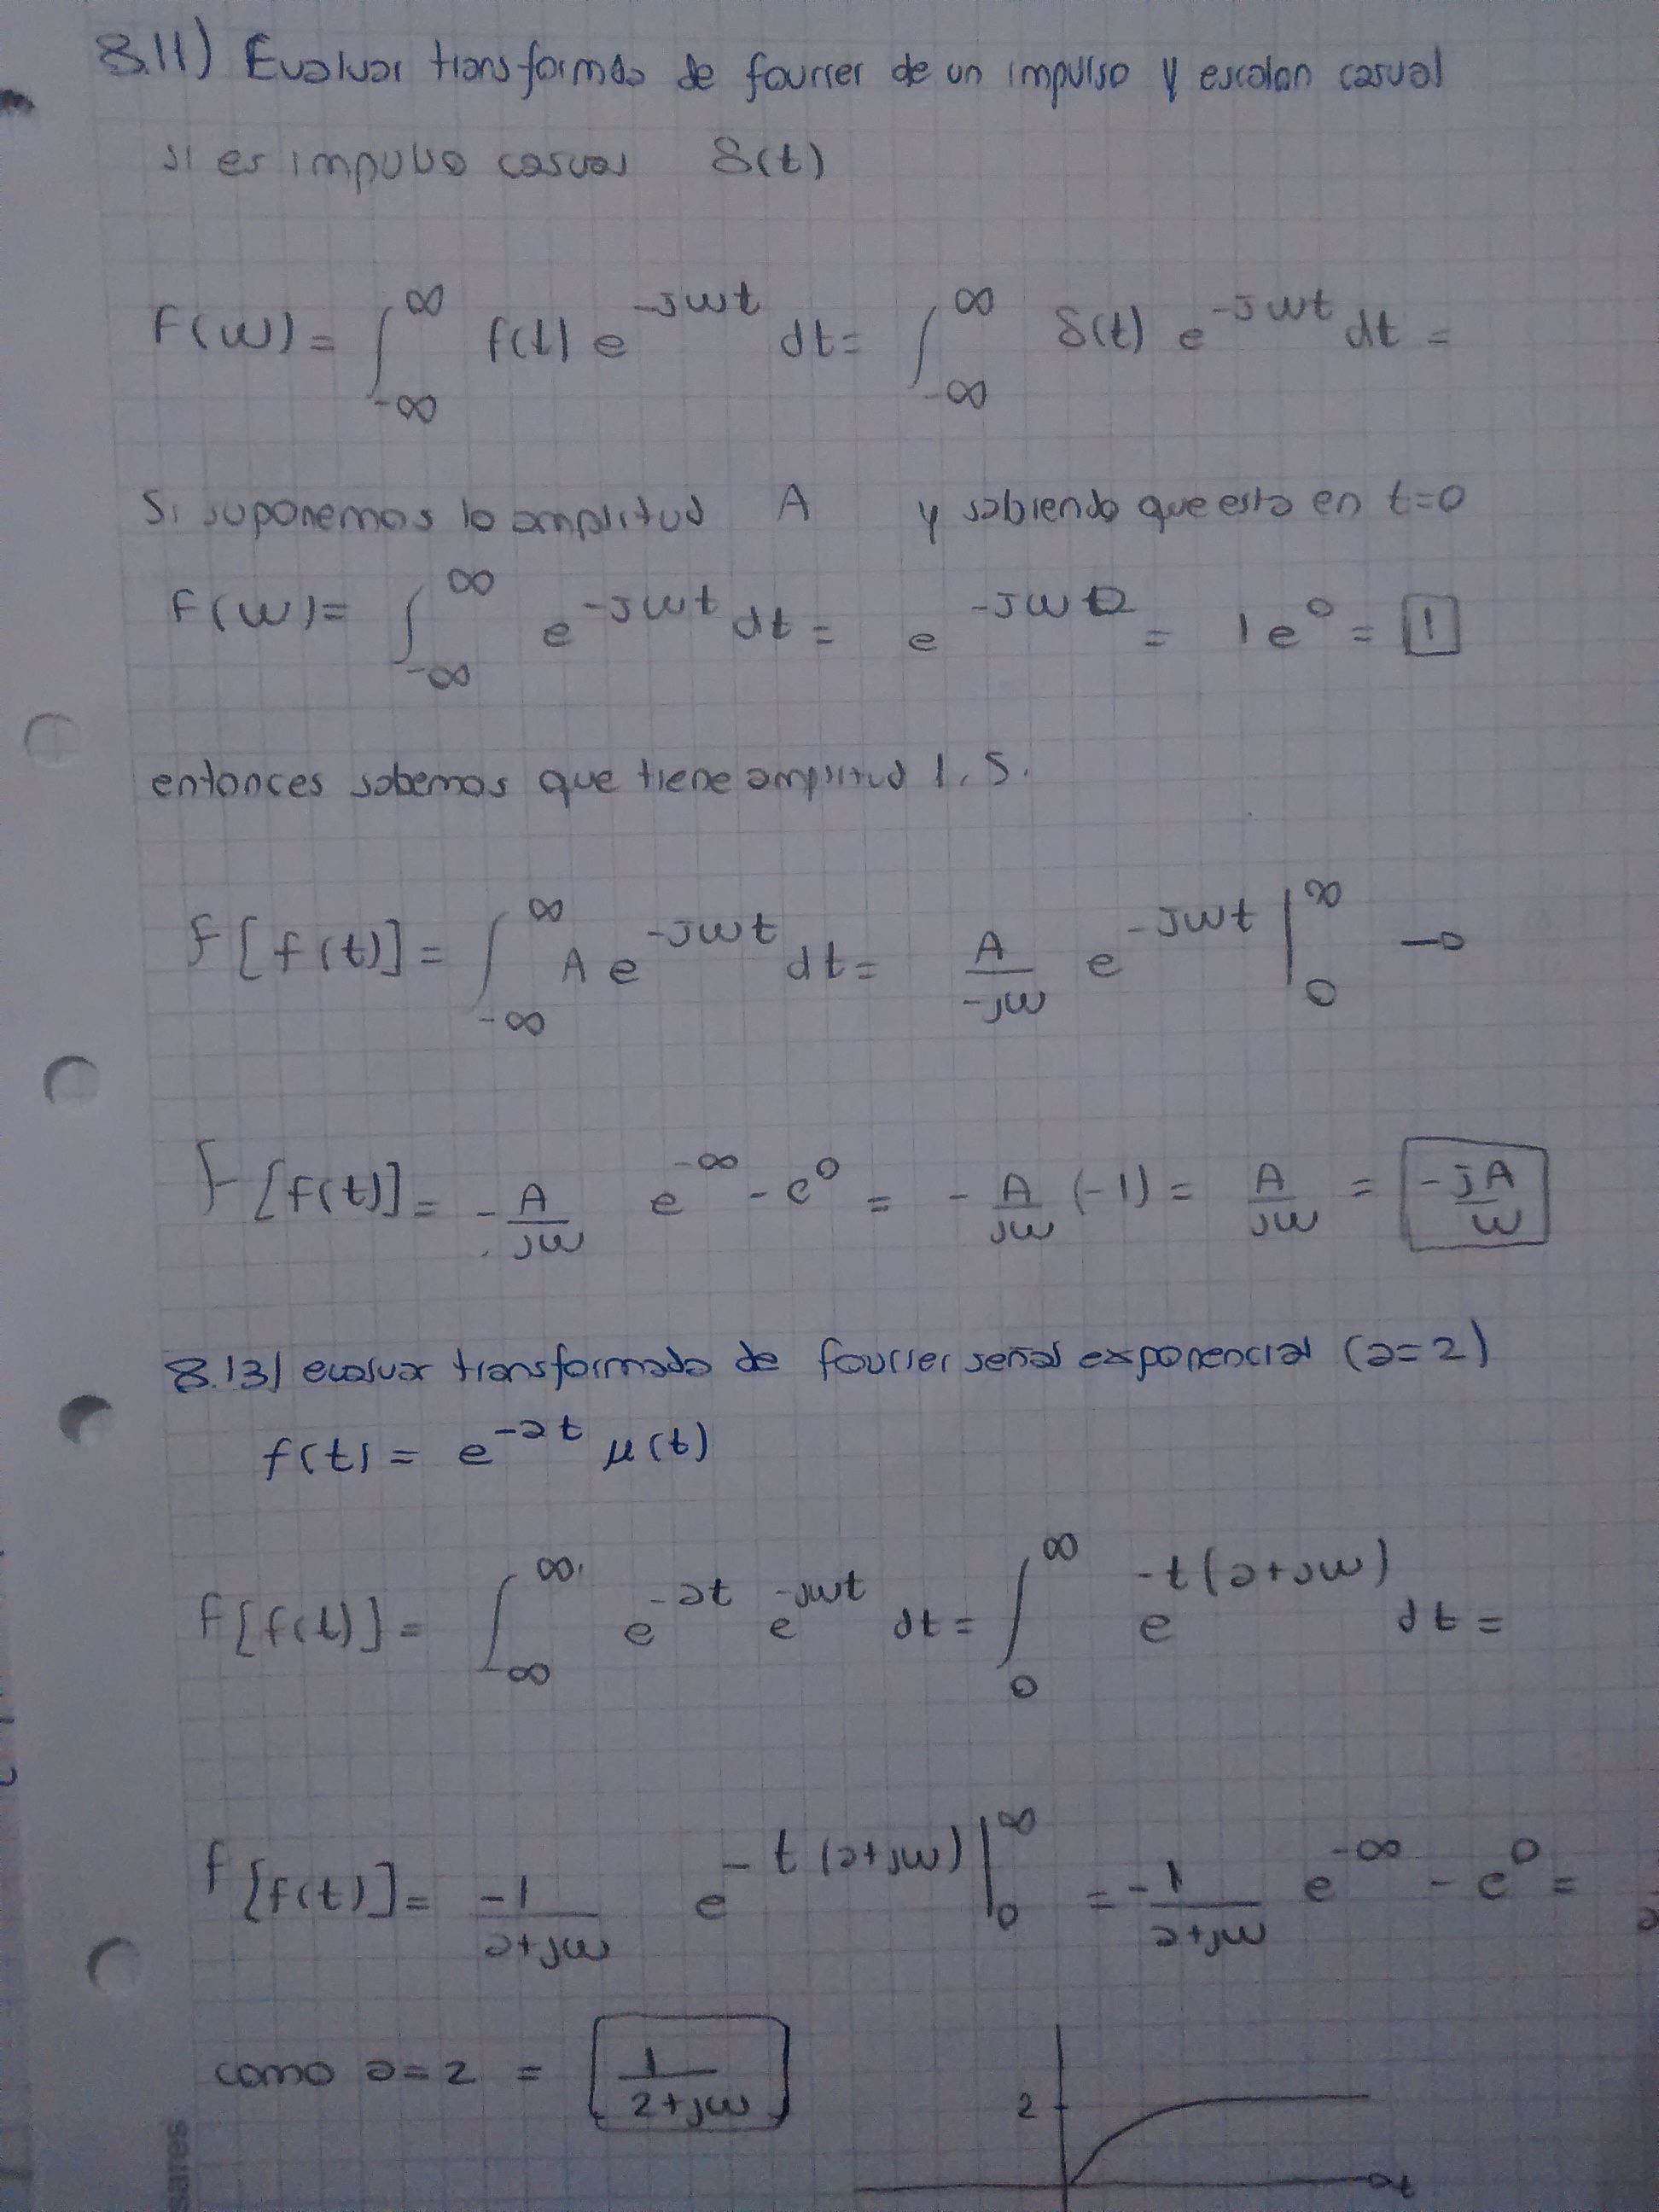 8.11) Evaluar transformada de fourier de un impulso y escalon casual
si es impulso casual δ(t)
F(w) = ∫_{-∞}^{∞} f(t) e^{-jwt} dt = ∫_{-∞}^{∞} δ(t) e^{-jwt} dt =
Si suponemos la amplitud A y sabiendo que esta en t=0
F(w) = ∫_{-∞}^{∞} e^{-jwt} dt = e^{-jw0} = 1e^0 = 1
entonces sabemos que tiene amplitud 1. S.
F[f(t)] = ∫_{-∞}^{∞} A e^{-jwt} dt = A/-jw e^{-jwt} |_0^∞ →
F[f(t)] = -A/jw e^{-∞} - e^0 = -A/jw (-1) = A/jw = -jA/w
8.13) evaluar transformada de fourier señal exponencial (a=2)
f(t) = e^{-at} μ(t)
F[f(t)] = ∫_{-∞}^{∞} e^{-at} e^{-jwt} dt = ∫_0^∞ e^{-t(a+jw)} dt =
F[f(t)] = -1/a+jw e^{-t(a+jw)} |_0^∞ = -1/a+jw e^{-∞} - e^0 =
como a=2 = 1/2+jw
2
t
sares